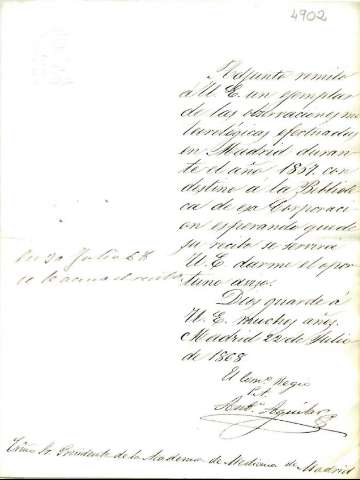 4902
Adjunto remito
á U. E. un ejemplar
de las observaciones me
teorológicas efectuadas
en Madrid duran-
te el año 1867. con
destino a la Bibliote
ca de esa Corporaci
on esperando que de
su recibo se servirá
U. E. darme el opor-
tuno aviso.
Dios guarde á
U. E. muchos años.
Madrid 22 de Julio
de 1868
En 30 Julio 68
se acusa el recibo
El Com.º Regio
Ant.º Aguilar
Exmo Sr. Presidente de la Academia de Medicina de Madrid